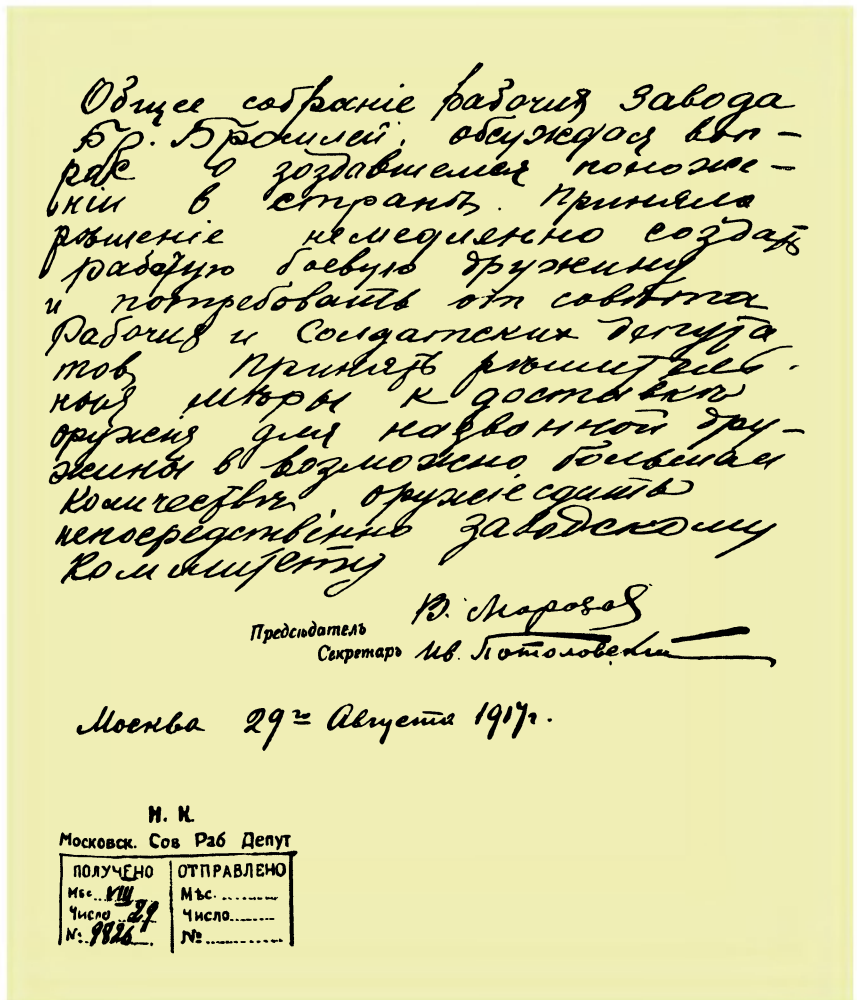 Общее собраніе рабочия завода
Бр. Бромлей, обсуждая воп-
рос о зоздавшемся положе-
ніи в странѣ. Приняло
рѣшеніе немедленно создать
рабочую боевую дружину
и потребовать от совѣта
Рабочия и Солдатских депута
тов Принять рѣшитель-
ныя мѣры к доставкѣ
оружия для названной дру-
жины в возможно большем
количествѣ, оружіе сдать
непосредственно заводскому
комитету
Предсѣдатель В. Морозов
Секретарь Ив. Потоловский
Москва 29го Августа 1917г.
И. К.
Московск. Сов Раб Депут
ПОЛУЧЕНО ОТПРАВЛЕНО
Мѣс. VIII Мѣс.
Число 29 Число
№ 9826 №